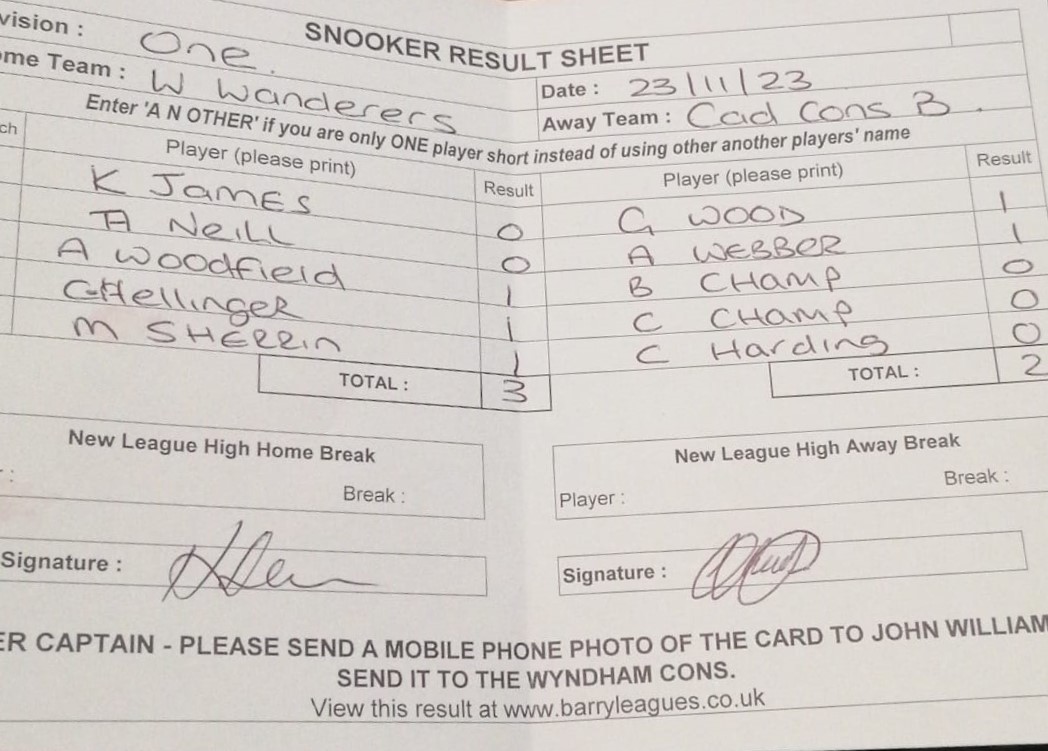 SNOOKER RESULT SHEET
vision : One.
me Team : W Wanderers
Date : 23/11/23
Away Team : Cad Cons B.
Enter 'A N OTHER' if you are only ONE player short instead of using other another players' name
ch Player (please print) Result Player (please print) Result
K JAMES 0 G WOOD 1
A NEILL 0 A WEBBER 1
A Woodfield 1 B CHAMP 0
G Hellinger 1 C CHAMP 0
M SHERRIN 1 C Harding 0
TOTAL : 3 TOTAL : 2
New League High Home Break New League High Away Break
Break : Player : Break :
Signature : Signature :
ER CAPTAIN - PLEASE SEND A MOBILE PHONE PHOTO OF THE CARD TO JOHN WILLIAM
SEND IT TO THE WYNDHAM CONS.
View this result at www.barryleagues.co.uk